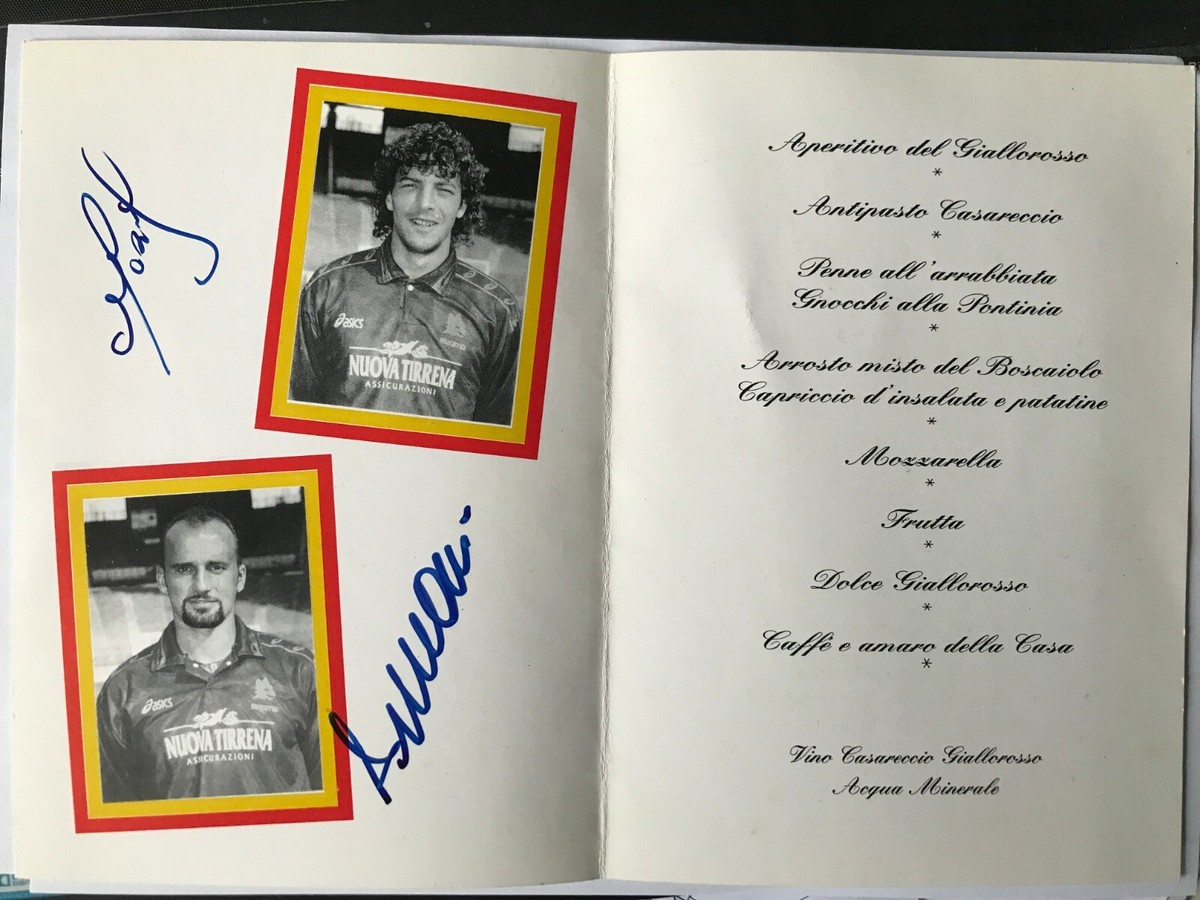 asics
NUOVA TIRRENA
ASSICURAZIONI
asics
NUOVA TIRRENA
ASSICURAZIONI
Aperitivo del Giallorosso
*
Antipasto Casareccio
*
Penne all'arrabbiata
Gnocchi alla Pontinia
*
Arrosto misto del Boscaiolo
Capriccio d'insalata e patatine
*
Mozzarella
*
Frutta
*
Dolce Giallorosso
*
Caffê e amaro della Casa
*
Vino Casareccio Giallorosso
Acqua Minerale